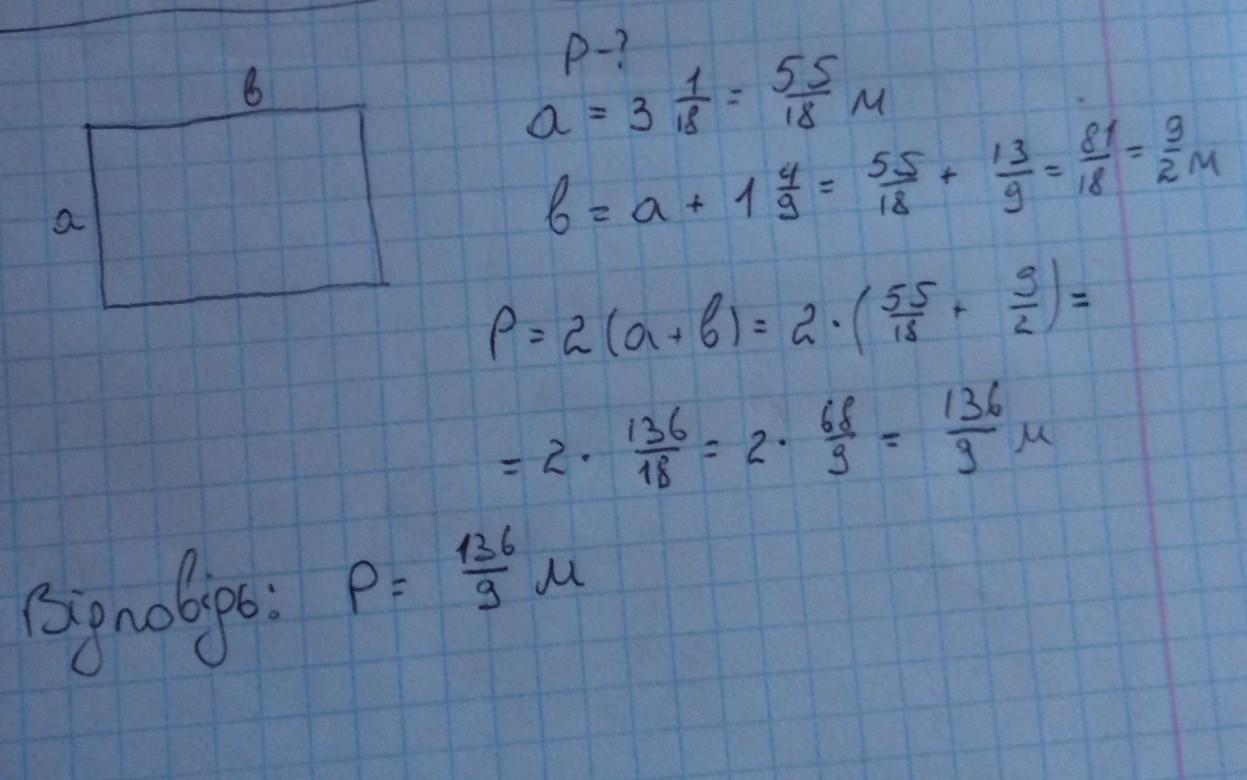 P-?
в
a = 3 1/18 = 55/18 м
a
в = a + 1 4/9 = 55/18 + 13/9 = 81/18 = 9/2 м
P = 2(a+в) = 2·(55/18 + 9/2) =
= 2· 136/18 = 2· 68/9 = 136/9 м
Відповідь: P = 136/9 м